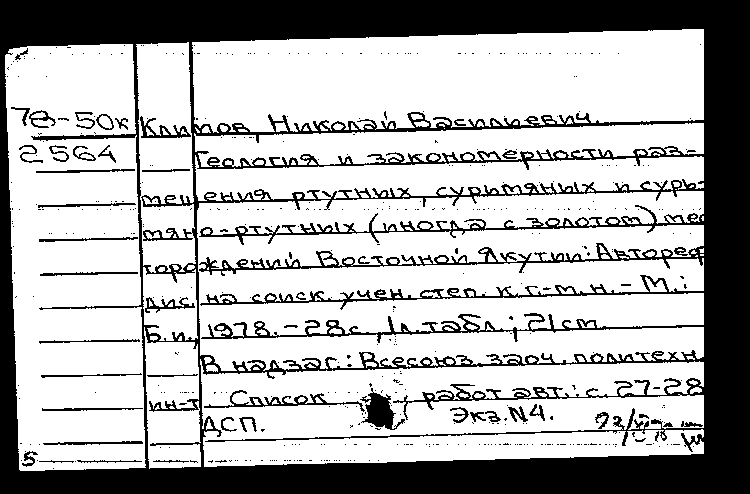 78-50к Климов, Николай Васильевич.
2564 Геология и закономерности раз-
мещения ртутных, сурьмяных и сурь-
мяно-ртутных (иногда с золотом) мес
торождений Восточной Якутии: Автореф
дис. на соиск. учен. степ. к. г.-м. н. - М.:
Б. и., 1978. - 28 с., 1 л. табл.; 21 см.
В надзаг.: Всесоюз. заоч. политехн.
ин-т. Список работ авт.: с. 27-28
ДСП. Экз. N4.
5